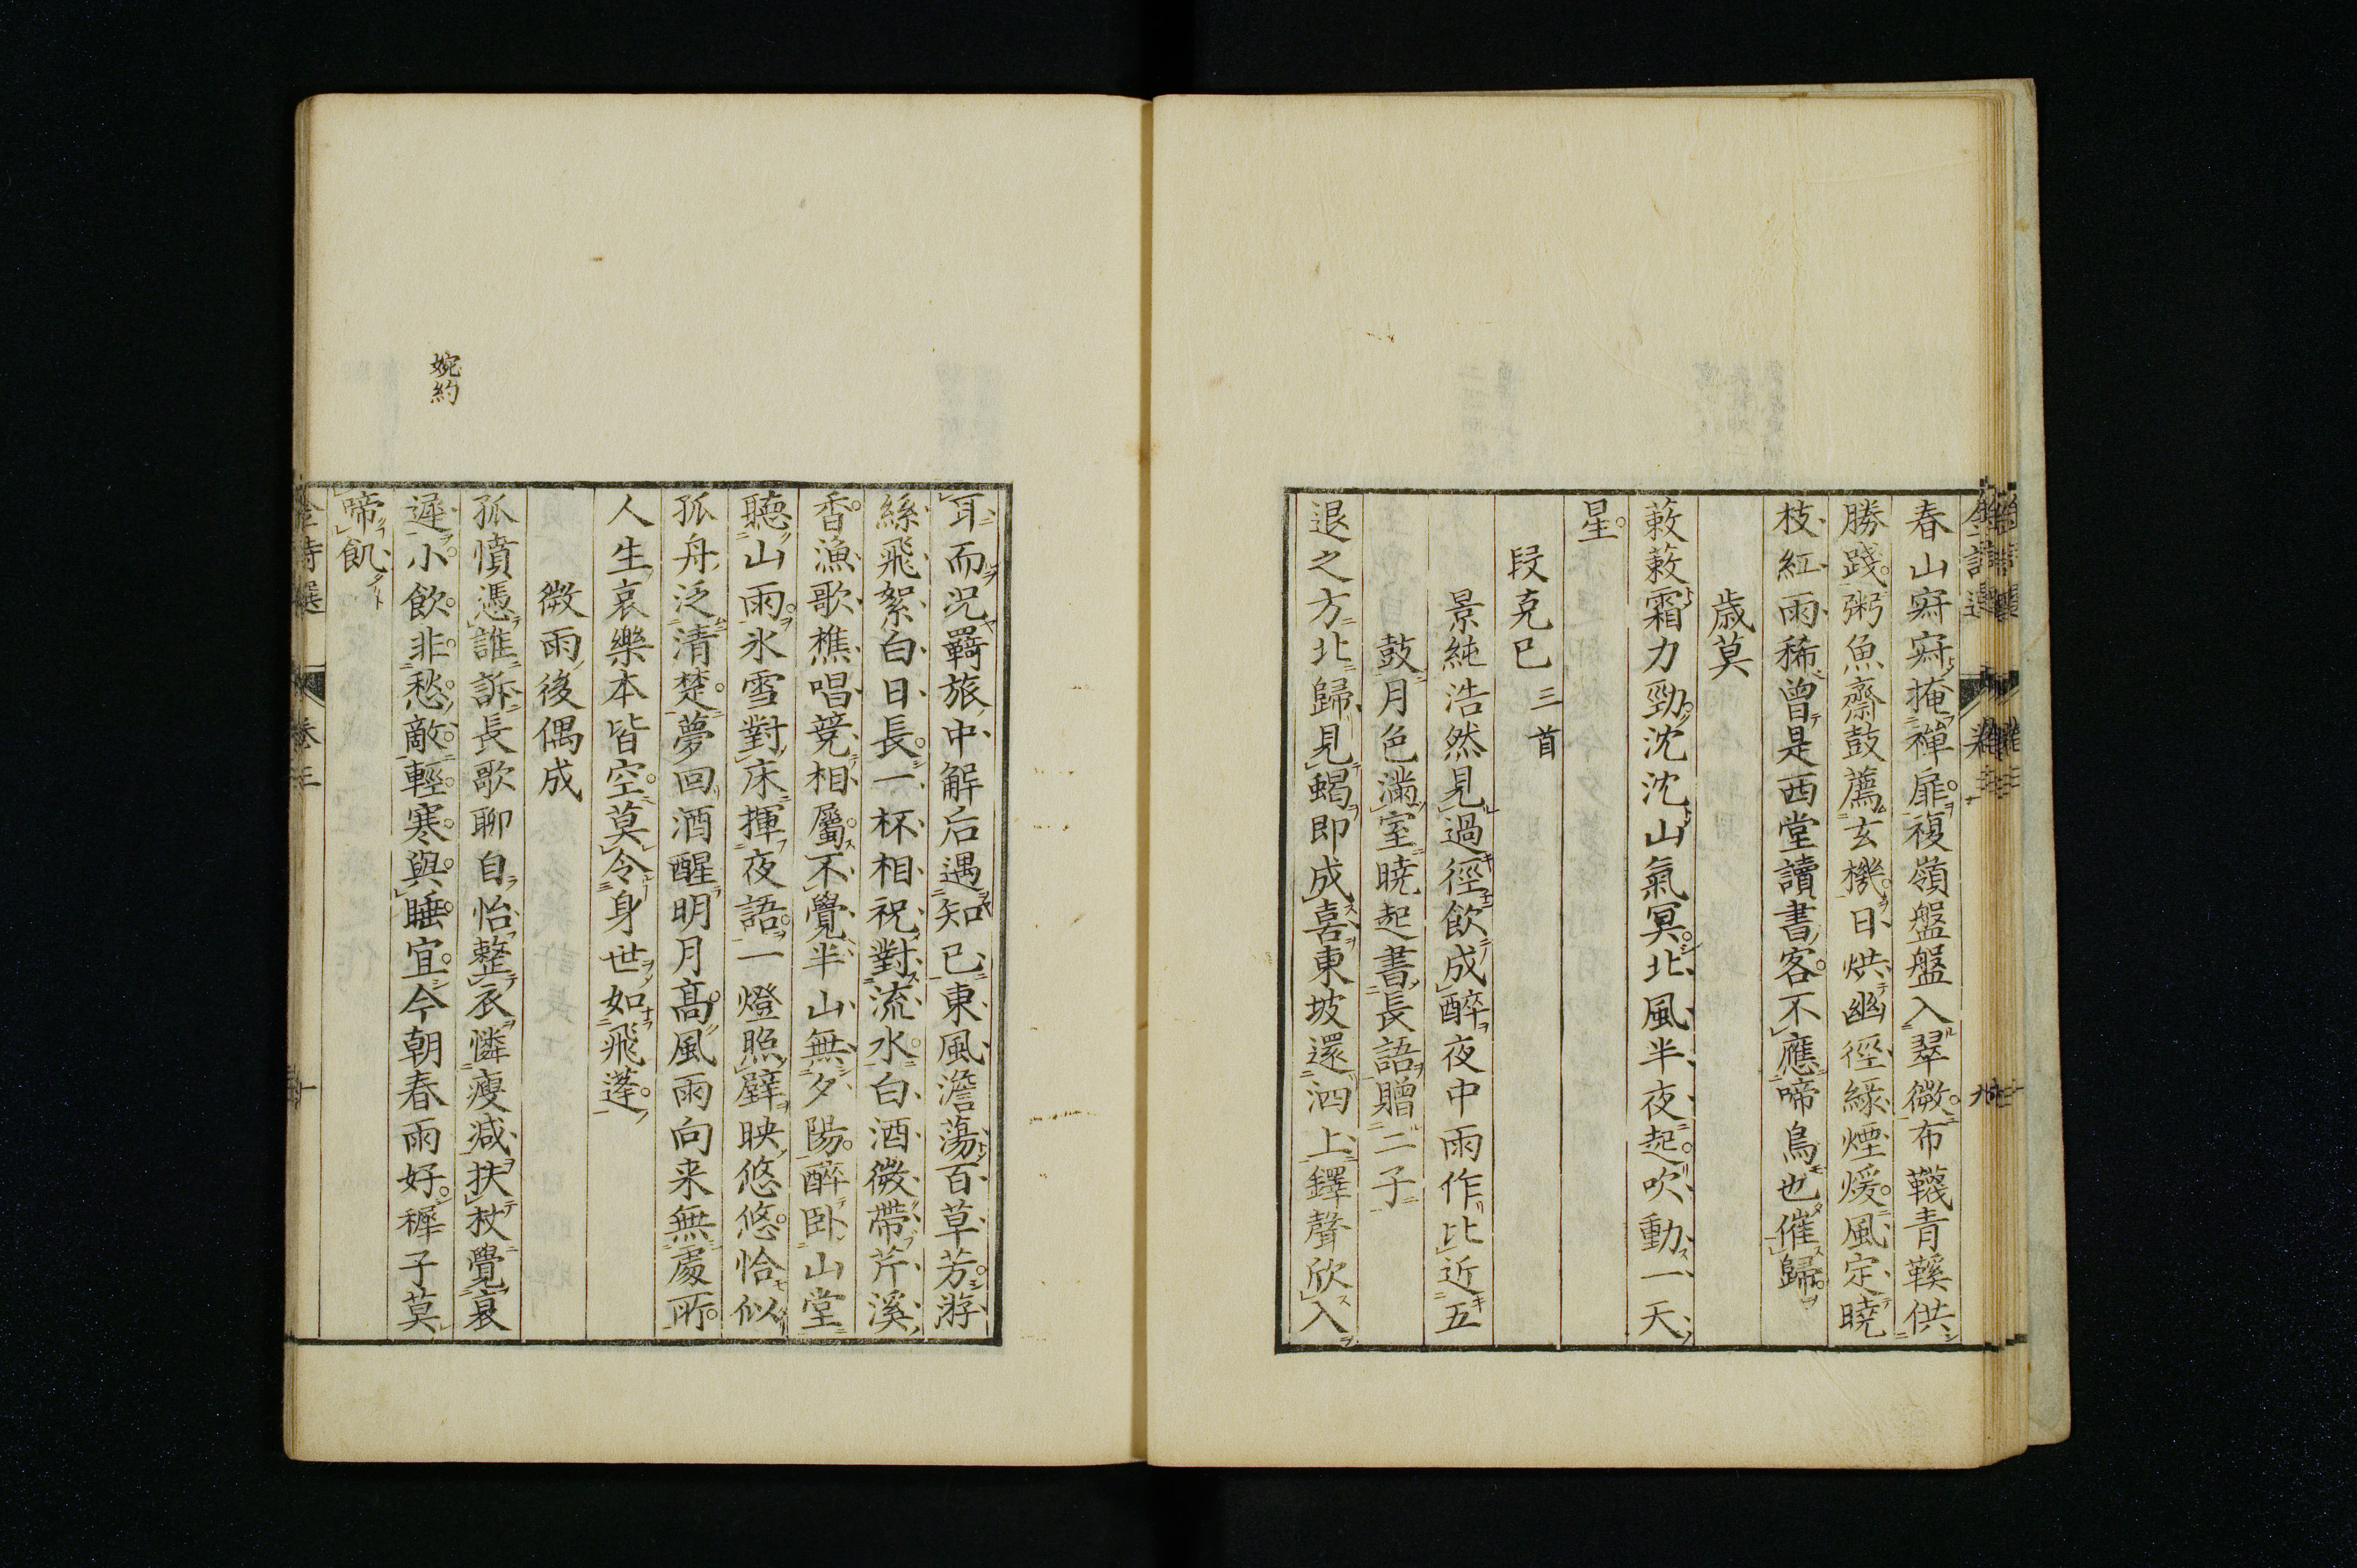 春山寂寂掩禪扉複嶺盤盤入翠微布韈青鞵供
勝踐粥魚齋鼓薦玄機日烘幽徑綠煙煖風定曉
枝紅雨稀曾是西堂讀書客不應啼鳥也催歸
歲莫
蔌蔌霜力勁沈沈山氣冥北風半夜起吹動一天
星
段克巳 三首
景純浩然見過徑飲成醉夜中雨作比近五
鼓月色滿室曉起書長語贈二子
退之方北歸見蝎即成喜東坡還泗上鐸聲欣入
耳而況羇旅中解后遇知已東風澹蕩百草芳游
絲飛絮白日長一杯相祝對流水白酒微帶芹溪
香漁歌樵唱競相屬不覺半山無夕陽醉卧山堂
聽山雨氷雪對床揮夜語一燈照壁映悠悠恰似
孤舟泛清楚夢回酒醒明月高風雨向来無處所
人生哀樂本皆空莫令身世如飛蓬
微雨後偶成
孤憤憑誰訴長歌聊自怡整衣憐瘦減扶杖覺衰
遲小飲非愁敵輕寒與睡宜今朝春雨好穉子莫
啼飢
婉約
金詩選 卷三 十